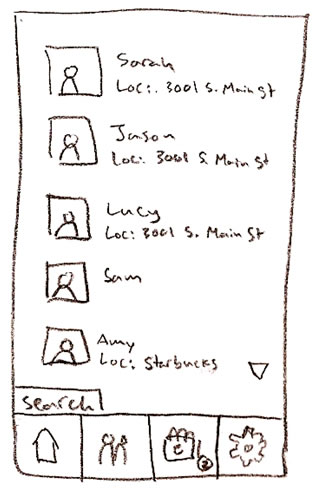 Sarah
Loc: 3001 S. Main St
Jason
Loc: 3001 S. Main St
Lucy
Loc: 3001 S. Main St
Sam
Amy
Loc: Starbucks
search
2